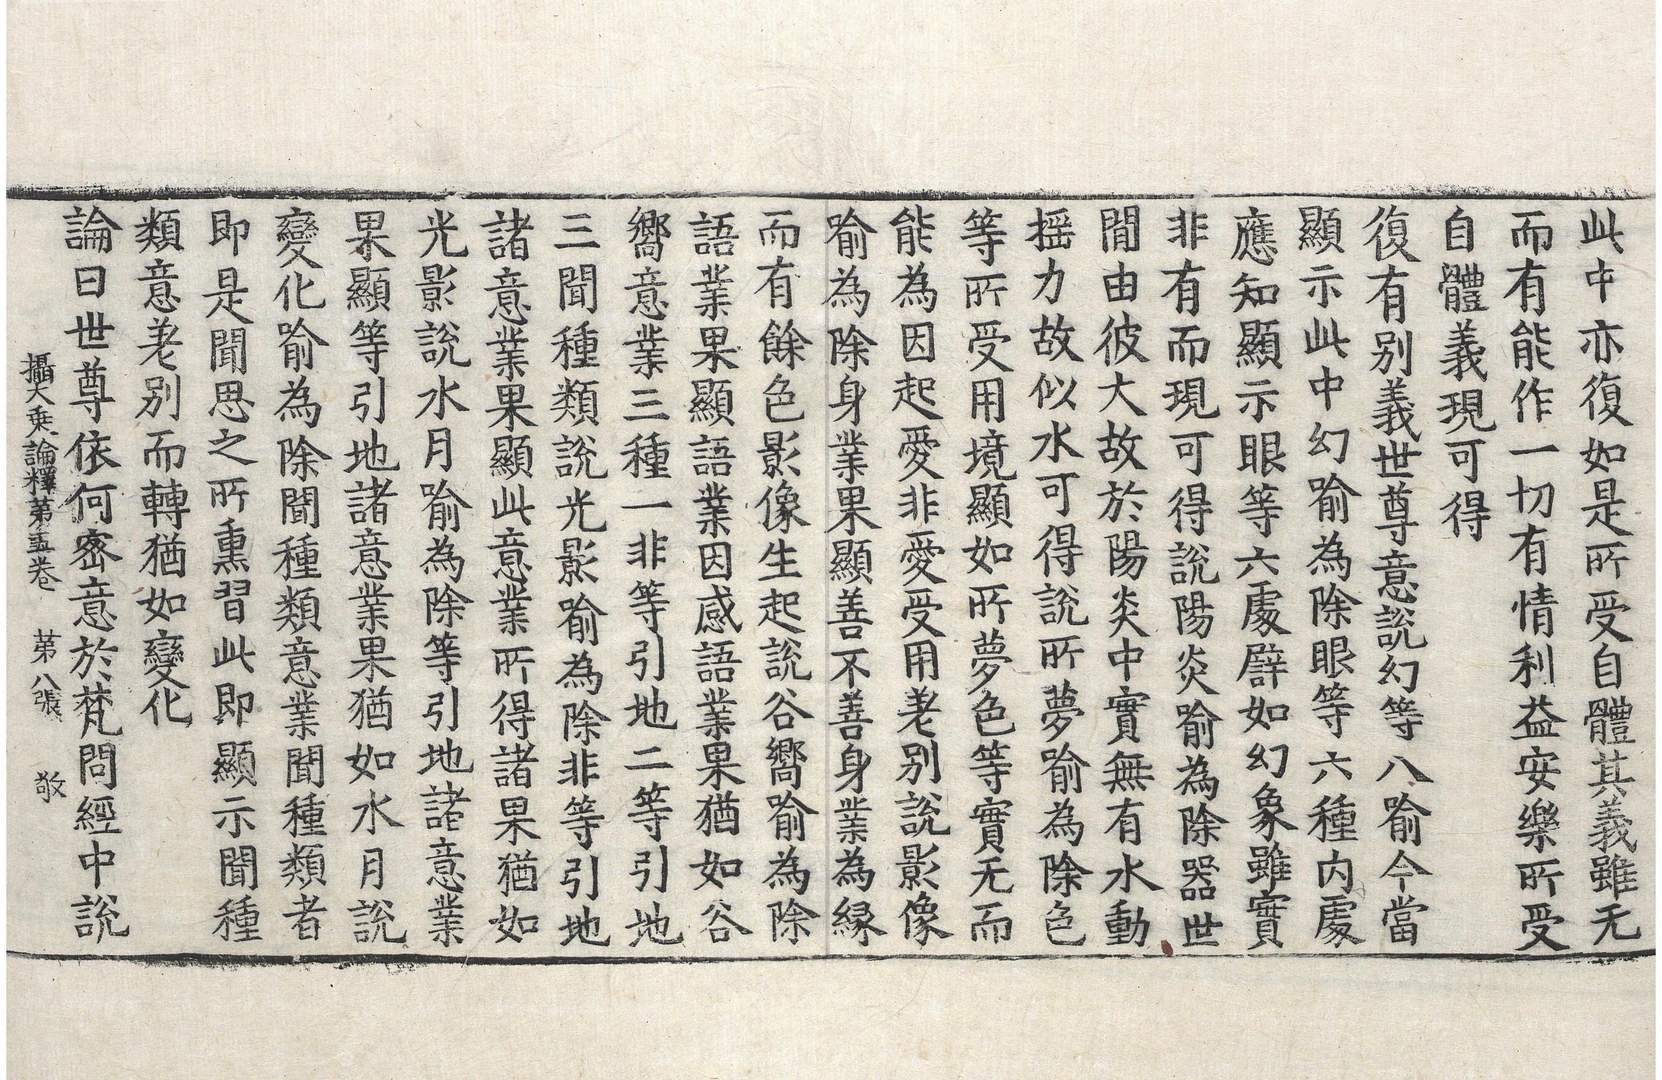 此中亦復如是所受自體其義雖无
而有能作一切有情利益安樂所受
自體義現可得
復有别義世尊意說幻等八喻今當
顯示此中幻喻為除眼等六種内處
應知顯示眼等六處譬如幻象雖實
非有而現可得說陽炎喻為除器世
間由彼大故於陽炎中實無有水動
摇力故似水可得說所夢喻為除色
等所受用境顯如所夢色等實无而
能為因起愛非愛受用差别說影像
喻為除身業果顯善不善身業為緣
而有餘色影像生起說谷嚮喻為除
語業果顯語業因感語業果猶如谷
嚮意業三種一非等引地二等引地
三聞種類說光影喻為除非等引地
諸意業果顯此意業所得諸果猶如
光影說水月喻為除等引地諸意業
果顯等引地諸意業果猶如水月說
變化喻為除聞種類意業聞種類者
即是聞思之所熏習此即顯示聞種
類意差别而轉猶如變化
論曰世尊依何密意於梵問經中說
攝大乘論釋苐五卷 苐八張 敬